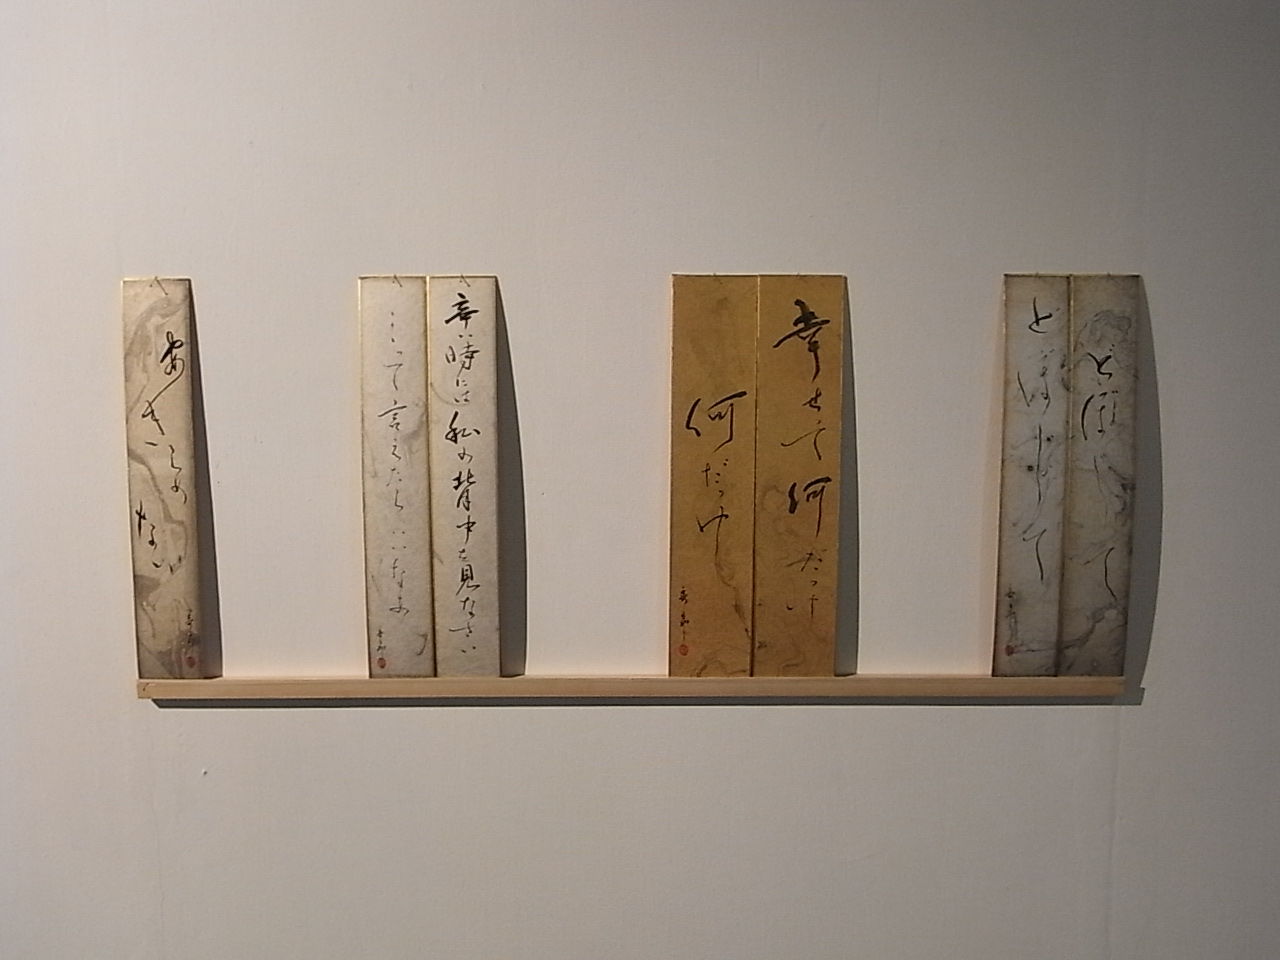 どぼじて
どぼじて
幸せて何だっけ
何だっけ
辛い時には私の背中を見なさい
って言えたらいいなあ
あきらめない